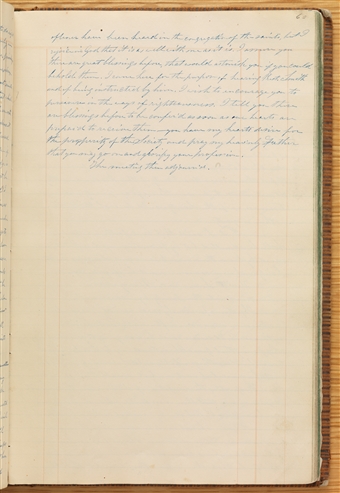 often been heard in the congregation of the saints, but I
rejoice in God that it is as well with me as it is. I assure you
there are great blessings before, that would astonish you if you could
behold them. I was here for the purpose of hearing that
and of being instructed by him. I wish to encourage you to
persevere in the ways of righteousness. I tell you there
are blessings before to be conferred as soon as our hearts are
prepared to receive them. you have my hearts desire for
the prosperity of the Society and pray my heavenly father
that you may go on and glorify your profession.
The meeting then adjourned.